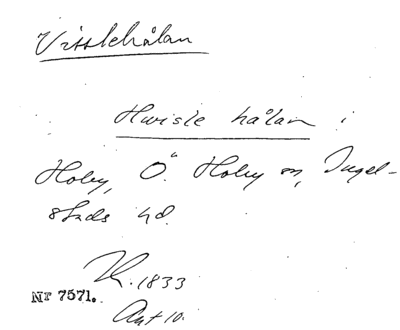 Visslehålan
Hwisle hålan i
Hoby, Ö. Hoby sn, Ingel-
stads hd.
1833
Nr 7571.
Akt 10.